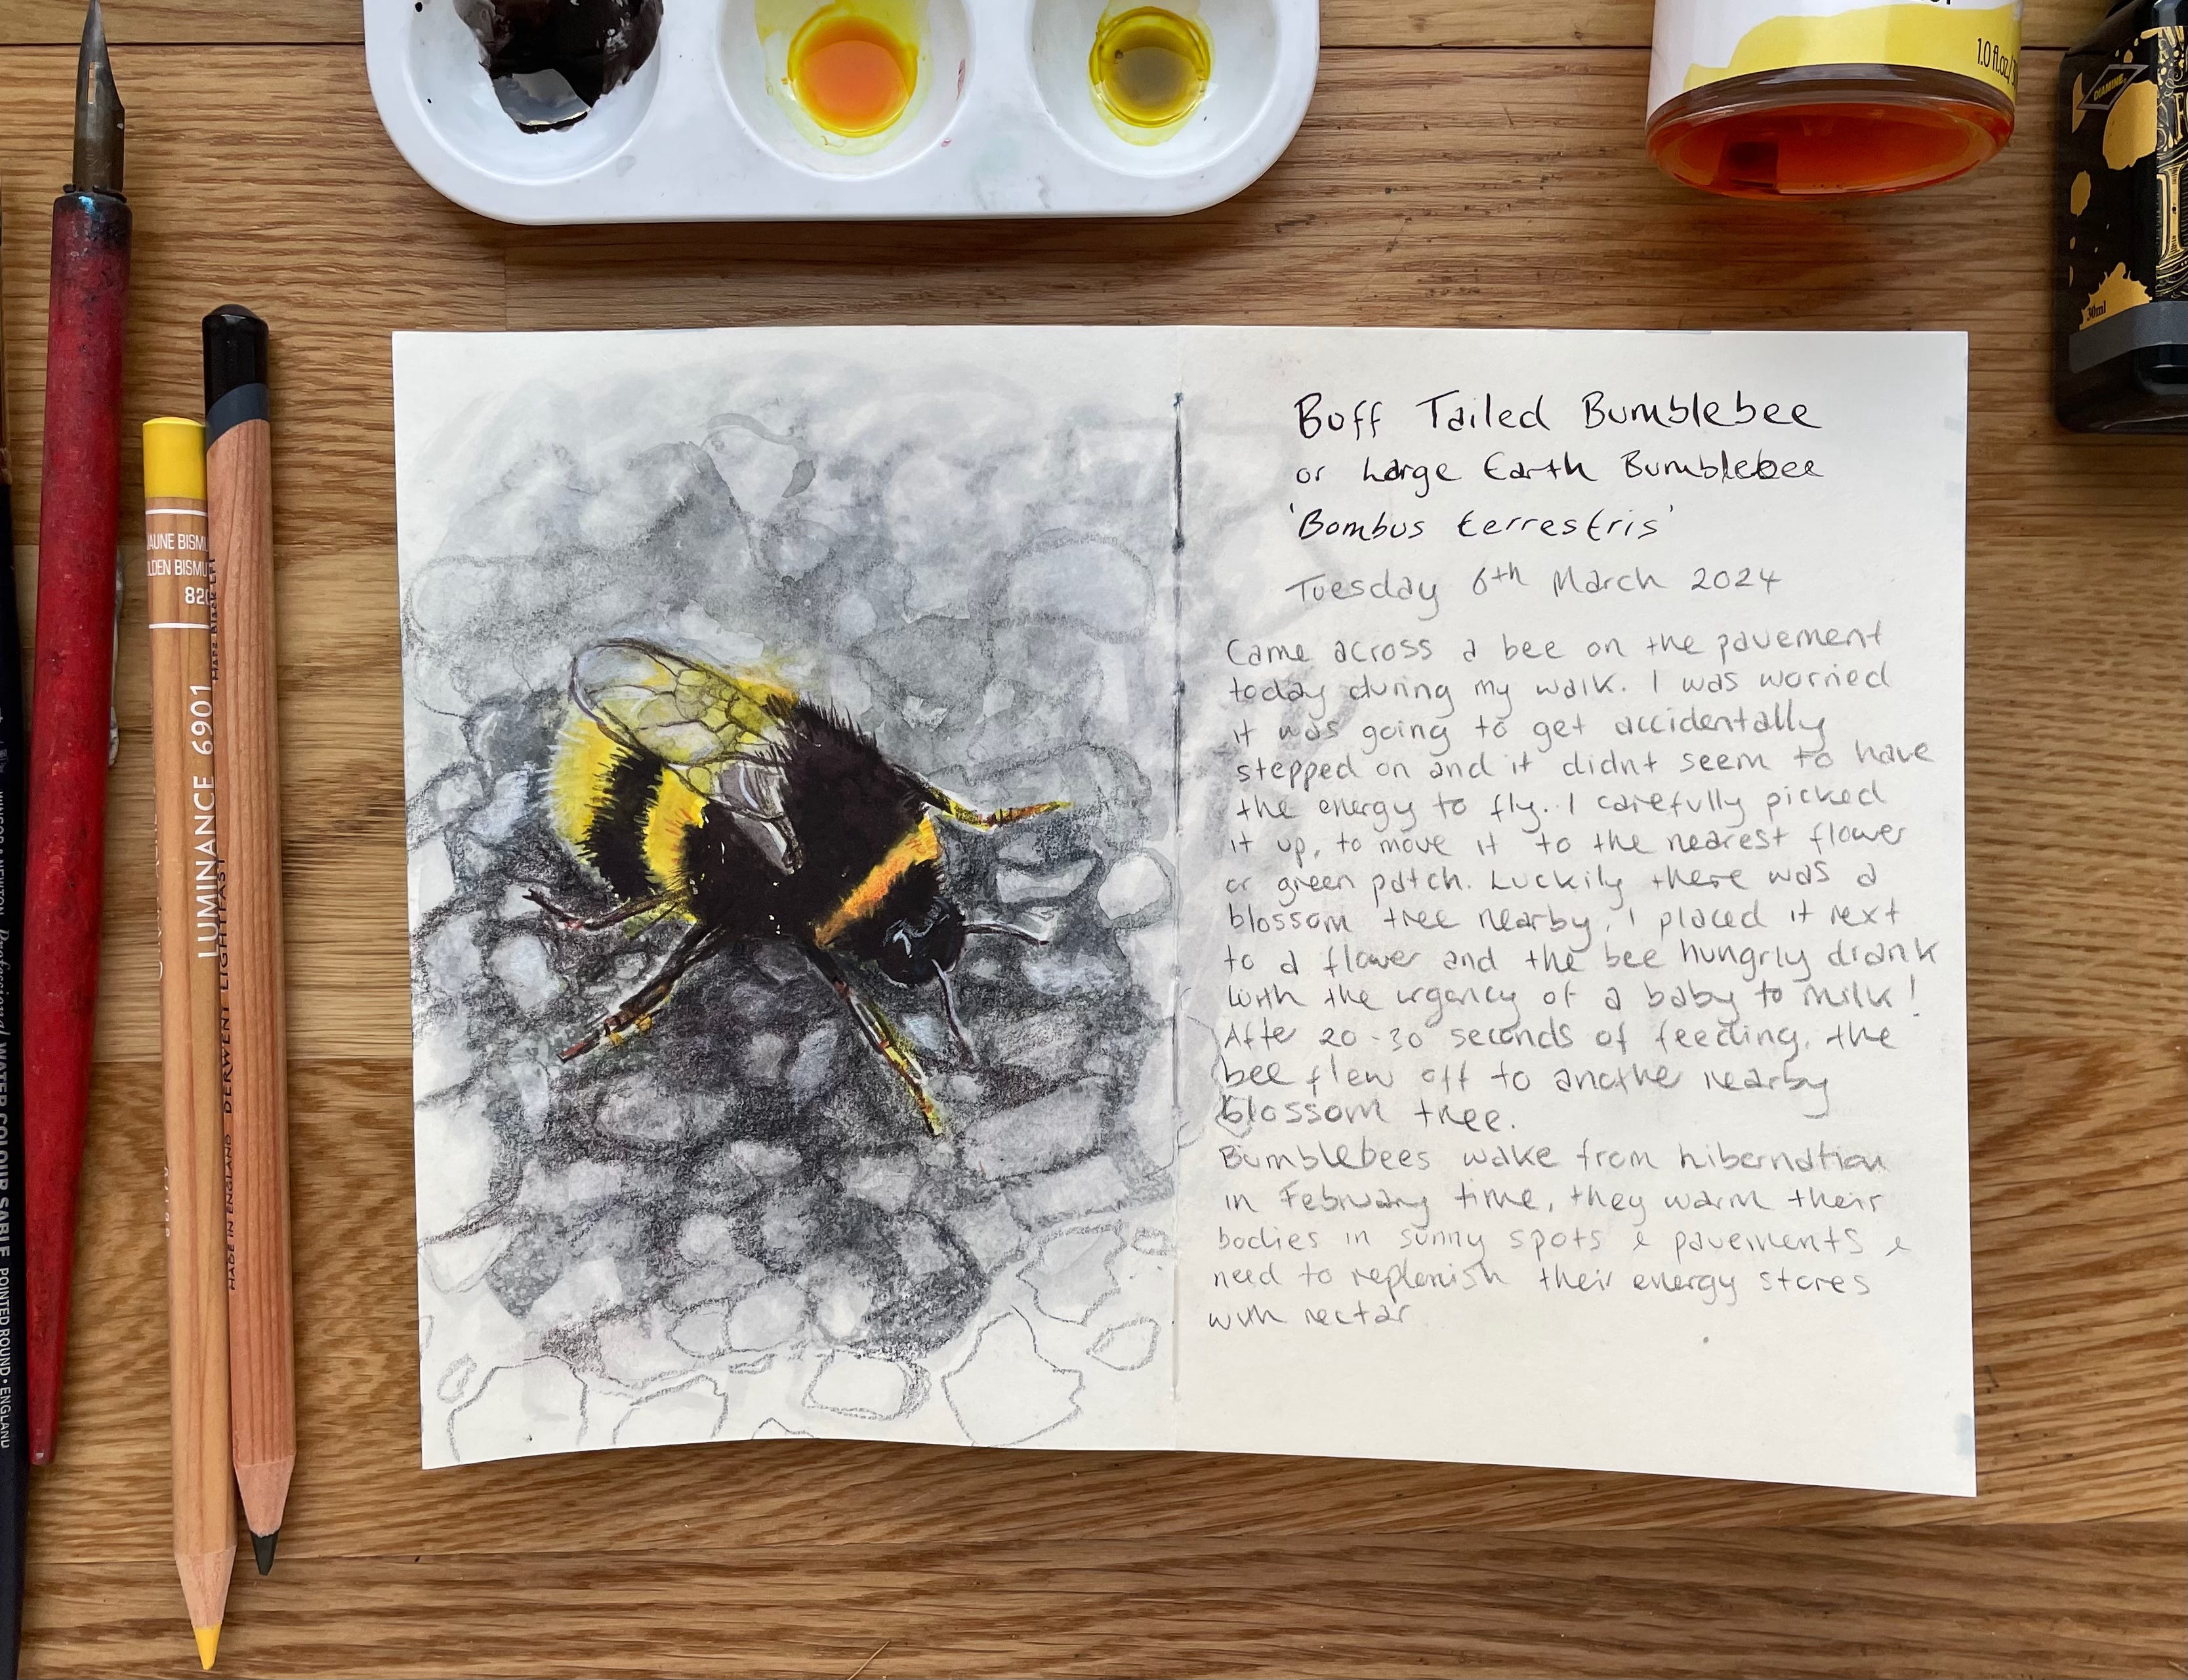 1.0 fl.oz/
DIAMINE
30ml
Buff Tailed Bumblebee
or Large Earth Bumblebee
'Bombus terrestris'
Tuesday 6th March 2024
Came across a bee on the pavement
today during my walk. I was worried
it was going to get accidentally
stepped on and it didnt seem to have
the energy to fly. I carefully picked
it up, to move it to the nearest flower
or green patch. Luckily there was a
blossom tree nearby, I placed it next
to a flower and the bee hungrly drank
with the urgency of a baby to milk!
After 20-30 seconds of feeding, the
bee flew off to another nearby
blossom tree.
Bumblebees wake from hibernation
in February time, they warm their
bodies in sunny spots & pavements &
need to replenish their energy stores
with nectar
JAUNE BISMU
LDEN BISMU
820
LUMINANCE 6901
MADE IN ENGLAND DERWENT LIGHTFAST
WINSOR & NEWTON Professional WATER COLOUR SABLE POINTED ROUND • ENGLAND